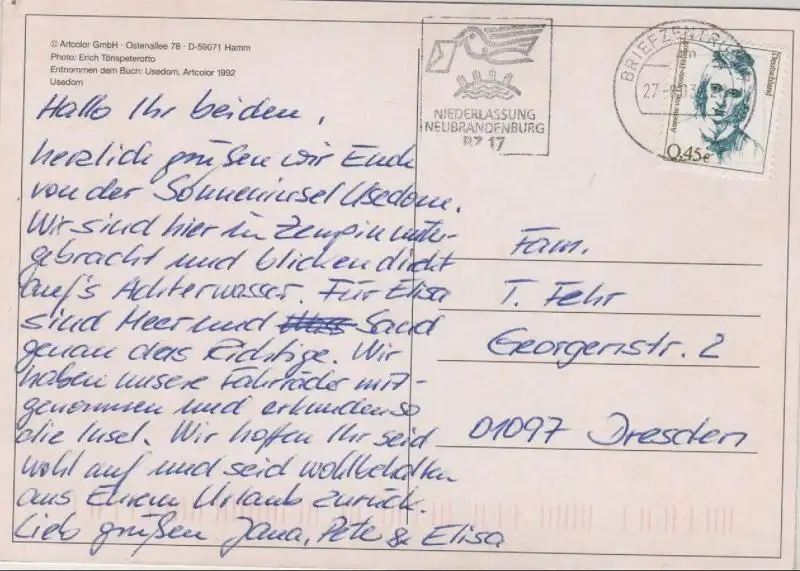 © Artcolor GmbH · Ostenallee 78 · D-59071 Hamm
Photo: Erich Tönspeterotto
Entnommen dem Buch: Usedom, Artcolor 1992
Usedom
Hallo Ihr beiden,
herzlich grüßen wir Euch
von der Sonneninsel Usedom.
Wir sind hier in Zempin unter-
gebracht und blicken direkt
auf's Achterwasser. Für Elisa
sind Meer und Sand
genau das Richtige. Wir
haben unsere Fahrräder mit-
genommen und erkunden so
die Insel. Wir hoffen Ihr seid
wohl auf und seid wohlbehalten
aus Eurem Urlaub zurück.
Lieb grüßen Jana, Pete & Elisa
NIEDERLASSUNG
NEUBRANDENBURG
BZ 17
BRIEFZENTRUM
Deutschland
Annette von Droste-Hülshoff
0,45€
Fam.
T. Fehr
Georgenstr. 2
01097 Dresden